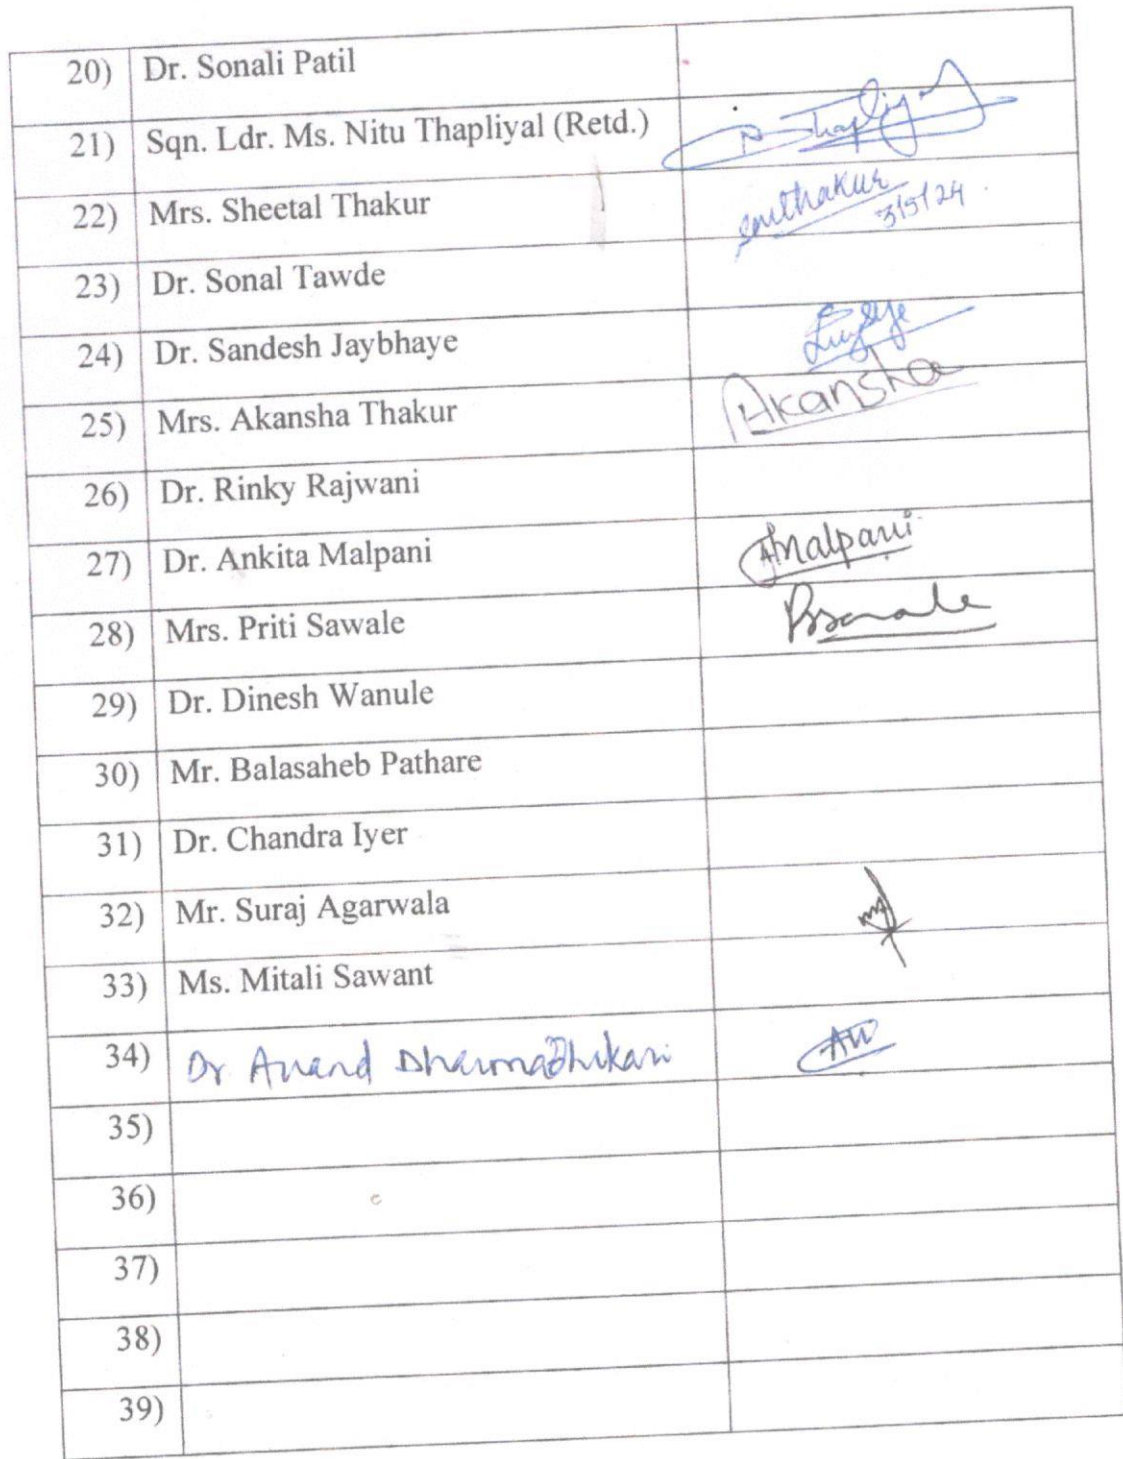 20) Dr. Sonali Patil
21) Sqn. Ldr. Ms. Nitu Thapliyal (Retd.) Thapliyal
22) Mrs. Sheetal Thakur
3/5/24
23) Dr. Sonal Tawde
24) Dr. Sandesh Jaybhaye
25) Mrs. Akansha Thakur Akansha
26) Dr. Rinky Rajwani
27) Dr. Ankita Malpani AMalpani
28) Mrs. Priti Sawale
29) Dr. Dinesh Wanule
30) Mr. Balasaheb Pathare
31) Dr. Chandra Iyer
32) Mr. Suraj Agarwala
33) Ms. Mitali Sawant
34) Dr Anand Dharmadhikari
35)
36)
37)
38)
39)